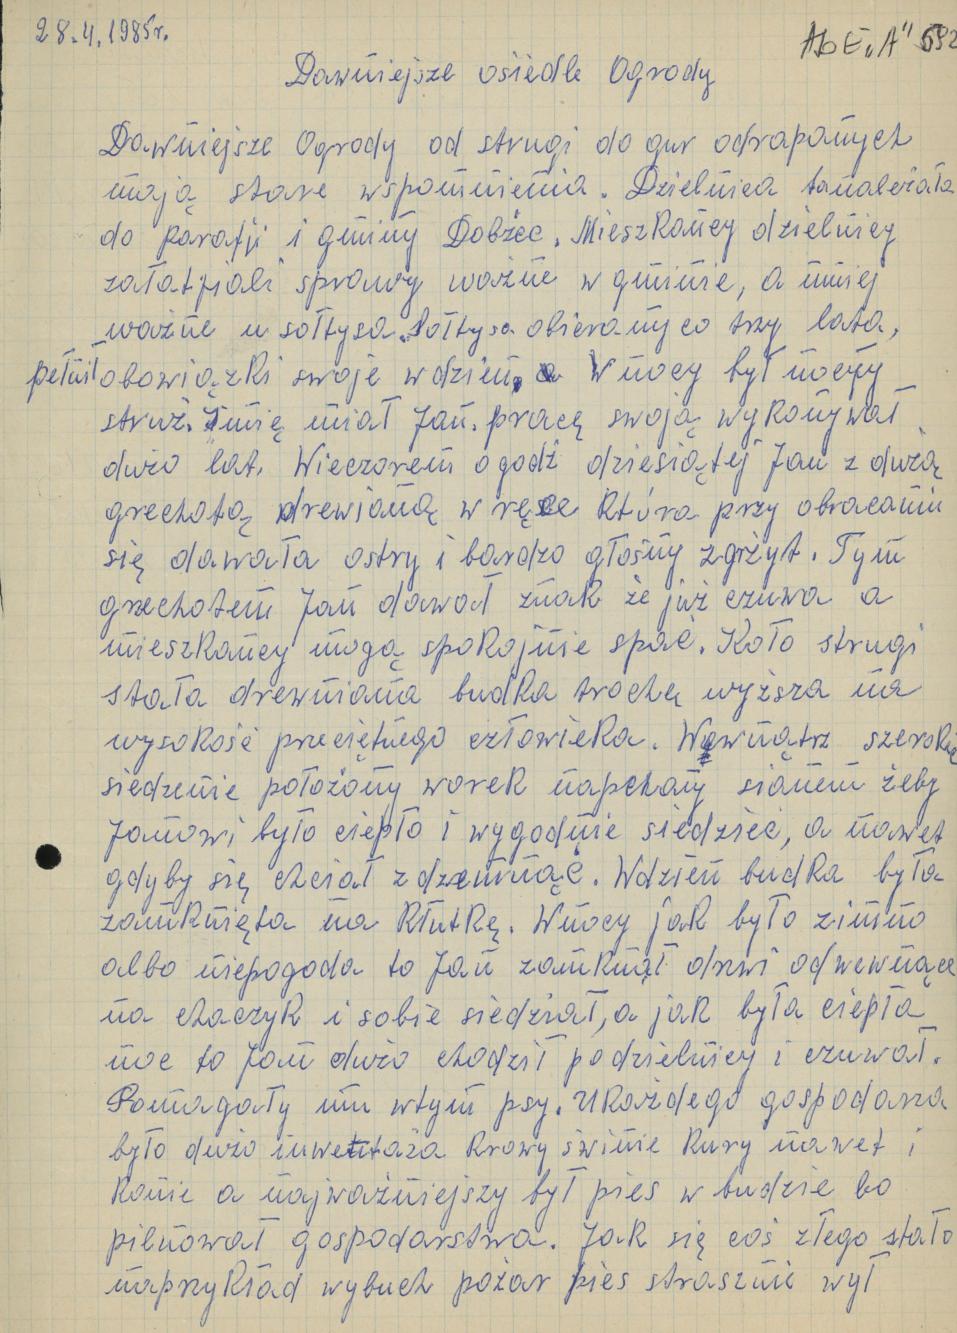 28.4.1985r.
AbE „A" 592
Dawniejsze osiedle Ogrody
Dawniejsze Ogrody od strugi do gur odrapanych
mają stare wspomnienia. Dzielnica tanależała
do parafji i gminy Dobżec. Mieszkańcy dzielnicy
załatfiali sprawy ważne w gminie, a mniej
ważne u sołtysa. Sołtysa obierany co trzy lata,
pełnił obowiązki swoje w dzień, a W nocy był nocny
struż. Imię miał Jan. pracę swoją wykonywał
dużo lat. Wieczorem o godź dziesiątej Jan z dużą
grechotą drewianą w ręce która przy obracaniu
się dawała ostry i bardzo głośny zgrżyt. Tym
grzechotem Jan dawał znak że już czuwa a
mieszkańcy mogą spokojnie spać. Koło strugi
stała drewniana budka trochę wyższa na
wysokość przeciętnego człowieka. Wewnątrz szerokie
siedzenie położony worek napchany sianem żeby
Janowi było ciepło i wygodnie siedzieć, a nawet
gdyby się chciał zdrzemnąć. Wdzień budka była
zamknięta na kłutkę. Wnocy jak było zimno
albo niepogoda to Jan zamknął drzwi odwewnące
na chaczyk i sobie siedział, a jak była ciepła
noc to Jan dużo chodził podzielnicy i czuwał.
Pomagały mu wtym psy. Ukażdego gospodarza
było dużo inwetaża krowy świnie kury nawet i
konie a najważniejszy był pies w budzie bo
pilnował gospodarstwa. Jak się coś złego stało
naprzykład wybuch pożar pies strasznie wył